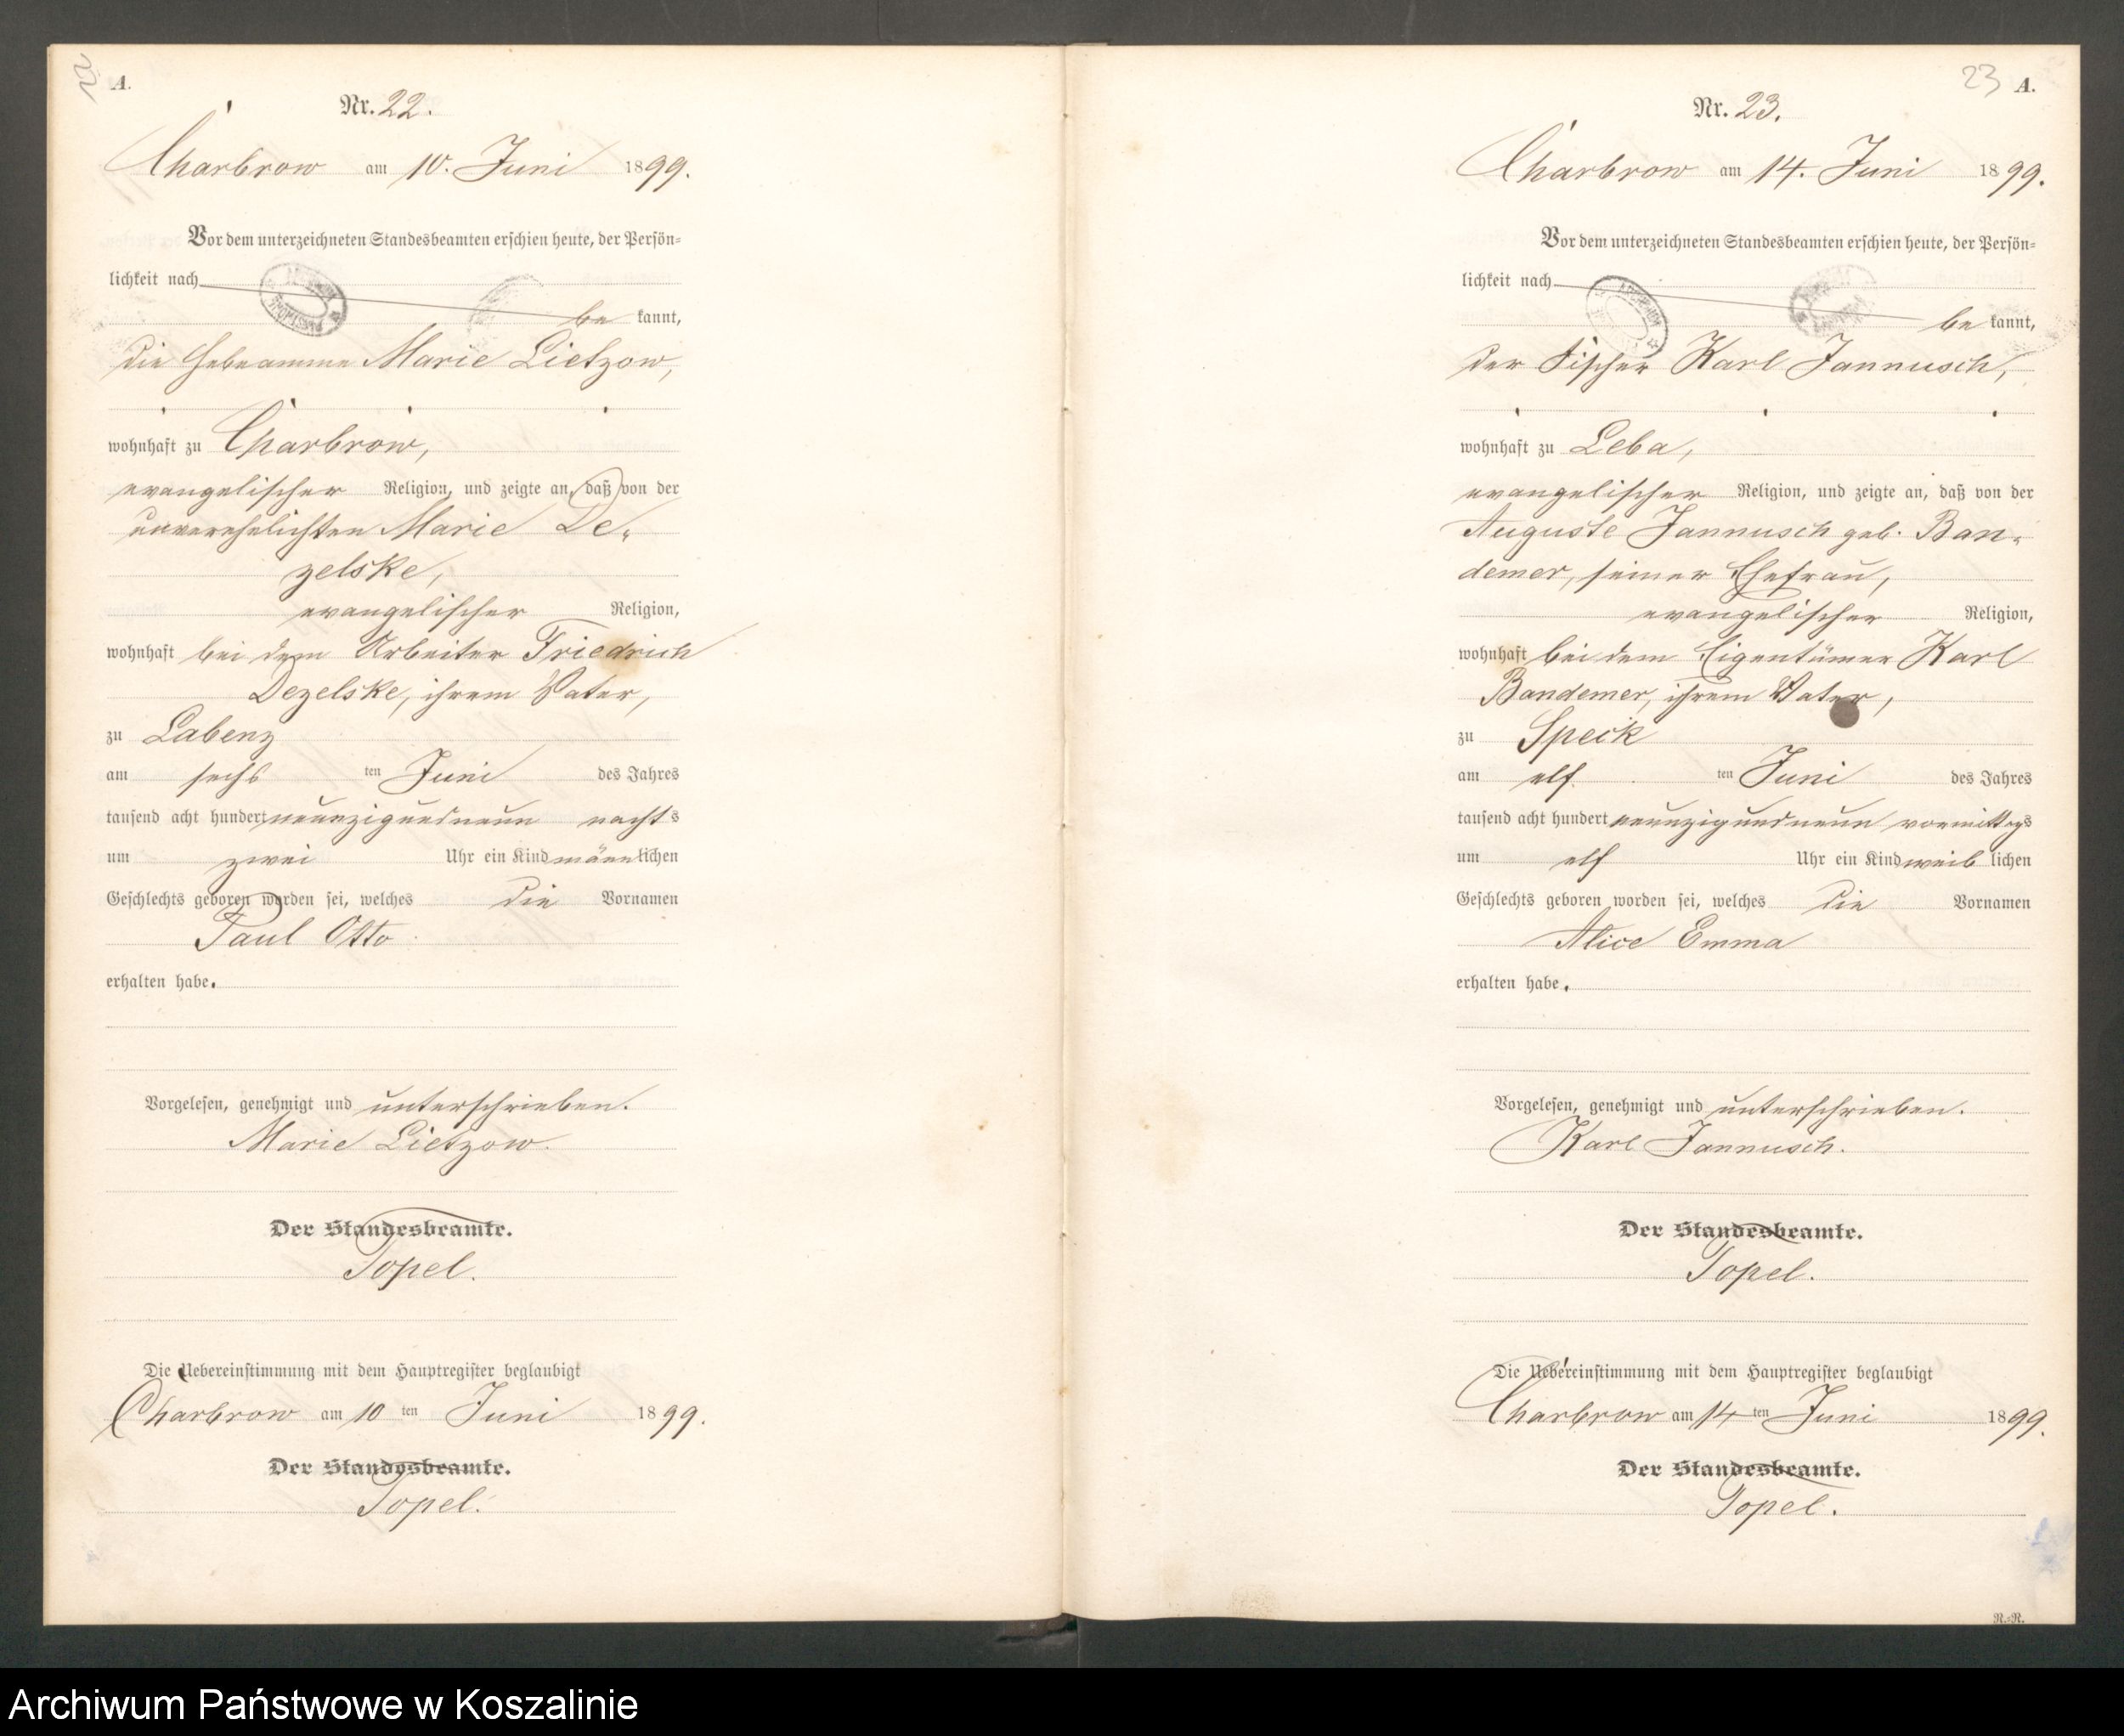 22
A.
Nr. 22.
Charbrow am 10. Juni 1899.
Vor dem unterzeichneten Standesbeamten erschien heute, der Persön=
lichkeit nach
be kannt,
die Hebeamme Marie Lietzow,
wohnhaft zu Charbrow,
evangelischer Religion, und zeigte an, daß von der
unverehelichten Marie De-
zelske,
evangelischer Religion,
wohnhaft bei dem Arbeiter Friedrich
Dezelske, ihrem Vater,
zu Labenz
am sechs ten Juni des Jahres
tausend acht hundert neunzigundneun nachts
um zwei Uhr ein Kind männlichen
Geschlechts geboren worden sei, welches die Vornamen
Paul Otto
erhalten habe.
Vorgelesen, genehmigt und unterschrieben.
Marie Lietzow.
Der Standesbeamte.
Topel.
Die Uebereinstimmung mit dem Hauptregister beglaubigt
Charbrow am 10 ten Juni 1899.
Der Standesbeamte.
Topel.
23 A.
Nr. 23.
Charbrow am 14. Juni 1899.
Vor dem unterzeichneten Standesbeamten erschien heute, der Persön=
lichkeit nach
be kannt,
der Fischer Karl Jannusch,
wohnhaft zu Leba,
evangelischer Religion, und zeigte an, daß von der
Auguste Jannusch geb. Ban-
demer, seiner Ehefrau,
evangelischer Religion,
wohnhaft bei dem Eigentümer Karl
Bandemer, ihrem Vater,
zu Speck
am elf ten Juni des Jahres
tausend acht hundert neunzigundneun vormittags
um elf Uhr ein Kind weib lichen
Geschlechts geboren worden sei, welches die Vornamen
Alice Emma
erhalten habe.
Vorgelesen, genehmigt und unterschrieben.
Karl Jannusch.
Der Standesbeamte.
Topel.
Die Uebereinstimmung mit dem Hauptregister beglaubigt
Charbrow am 14 ten Juni 1899.
Der Standesbeamte.
Topel.
R.=R.
Archiwum Państwowe w Koszalinie